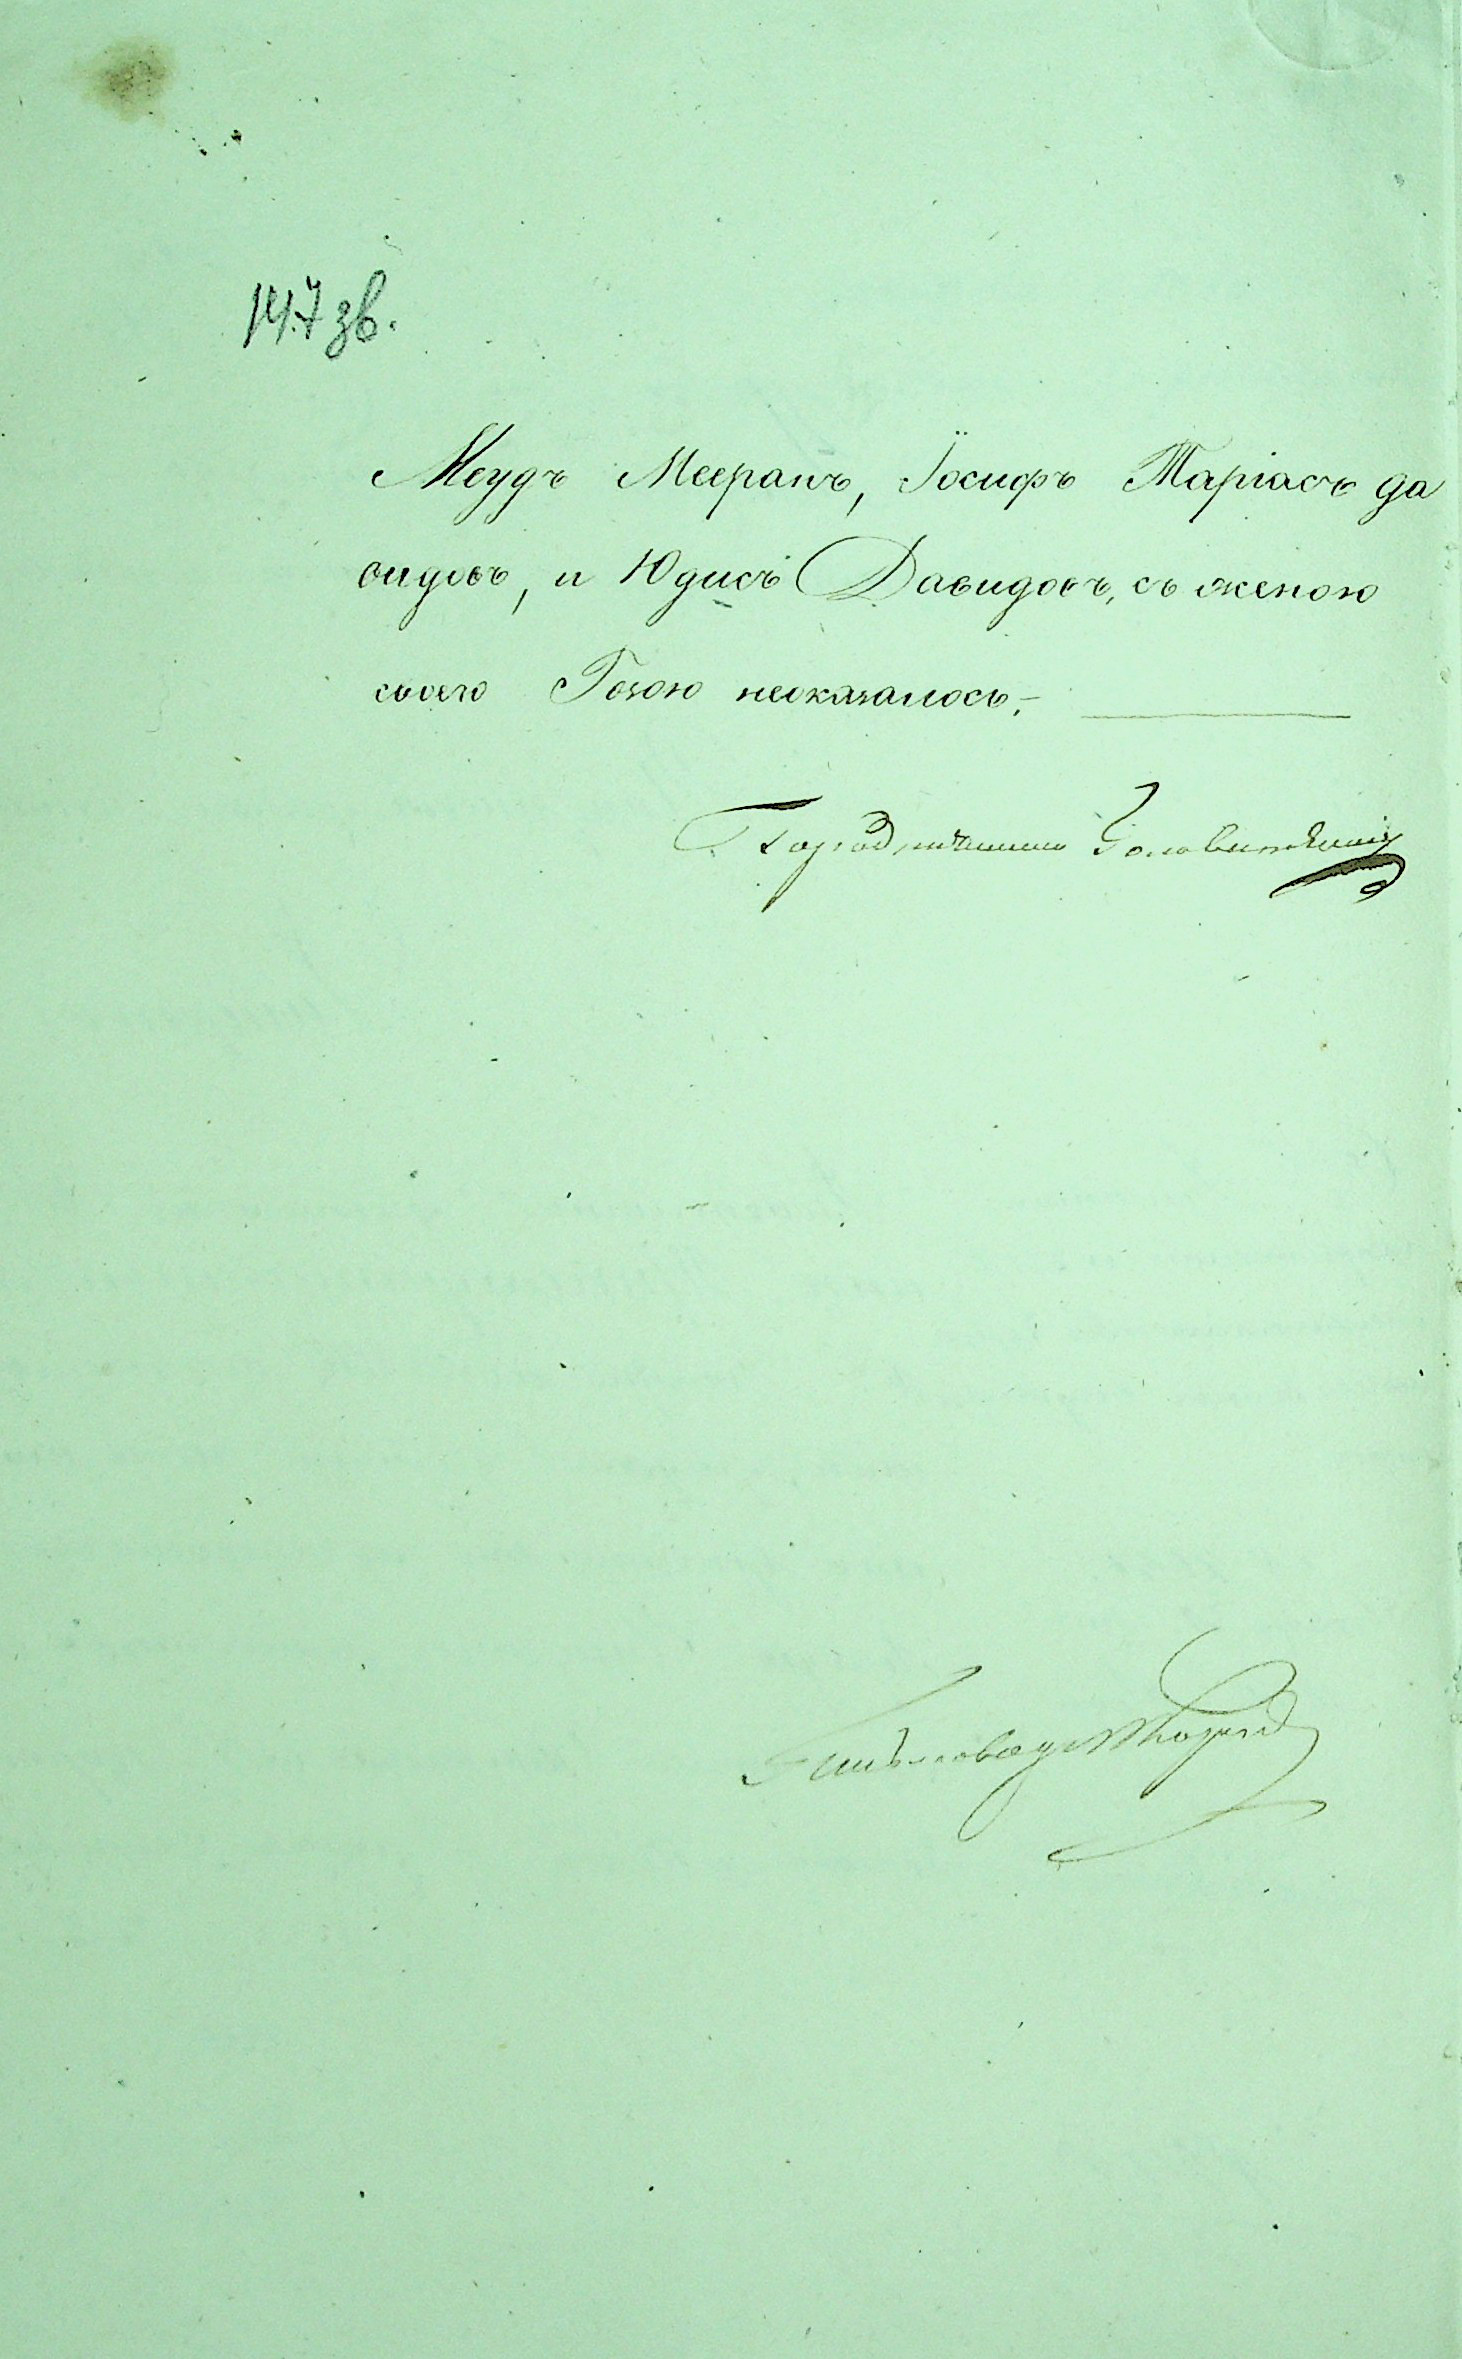 147 зв.
Меудъ Меерапъ, Іосифъ Таріасъ да
видовъ, и Юдисъ Давидовъ, съ женою
своею Гозою неоказалось.
Городничий